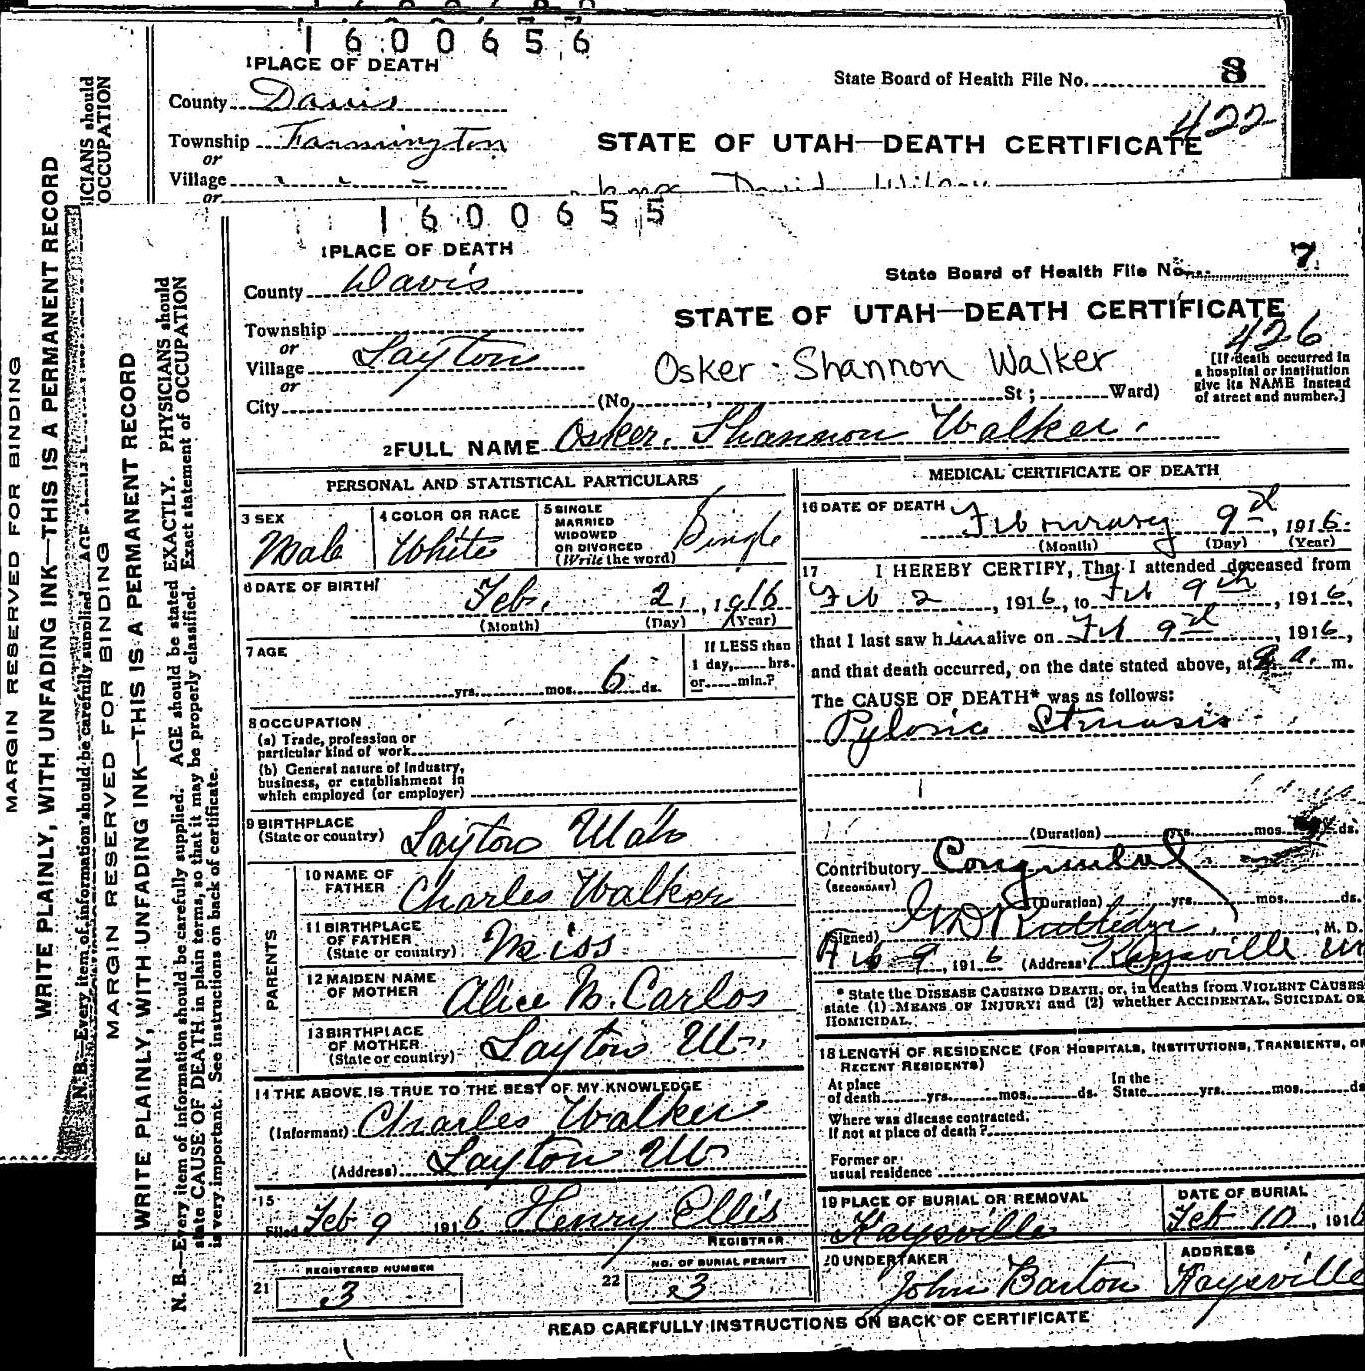 1600656
1 PLACE OF DEATH
State Board of Health File No. 8
County Davis
422
Township Farmington
STATE OF UTAH—DEATH CERTIFICATE
or
Village
or
David
ICIANS should
OCCUPATION
MARGIN RESERVED FOR BINDING
WRITE PLAINLY, WITH UNFADING INK—THIS IS A PERMANENT RECORD
N. B.—Every item of information should be carefully supplied. AGE
1600655
1 PLACE OF DEATH
State Board of Health File No. 7
County Davis
STATE OF UTAH—DEATH CERTIFICATE
Township
426
or
Village Layton
Osker Shannon Walker
[If death occurred in a hospital or institution give its NAME instead of street and number.]
or
City (No. , St ; Ward)
2 FULL NAME Osker Shannon Walker.
MARGIN RESERVED FOR BINDING
WRITE PLAINLY, WITH UNFADING INK—THIS IS A PERMANENT RECORD
N. B.—Every item of information should be carefully supplied. AGE should be stated EXACTLY. PHYSICIANS should
state CAUSE OF DEATH in plain terms, so that it may be properly classified. Exact statement of OCCUPATION
is very important. See instructions on back of certificate.
PERSONAL AND STATISTICAL PARTICULARS
3 SEX Male
4 COLOR OR RACE White
5 SINGLE MARRIED WIDOWED OR DIVORCED (Write the word) Single
6 DATE OF BIRTH Feb. 2, 1916
(Month) (Day) (Year)
7 AGE
yrs. mos. 6 ds.
If LESS than
1 day, hrs.
or min.?
8 OCCUPATION
(a) Trade, profession or
particular kind of work
(b) General nature of industry,
business, or establishment in
which employed (or employer)
9 BIRTHPLACE
(State or country) Layton Utah
PARENTS
10 NAME OF
FATHER Charles Walker
11 BIRTHPLACE
OF FATHER
(State or country) Miss
12 MAIDEN NAME
OF MOTHER Alice M. Carlos
13 BIRTHPLACE
OF MOTHER
(State or country) Layton Ut.
14 THE ABOVE IS TRUE TO THE BEST OF MY KNOWLEDGE
(Informant) Charles Walker
(Address) Layton Ut
15
Filed Feb 9 1916 Henry Ellis
REGISTRAR
REGISTERED NUMBER
21 3
NO. OF BURIAL PERMIT
22 3
MEDICAL CERTIFICATE OF DEATH
16 DATE OF DEATH February 9th, 1916
(Month) (Day) (Year)
17 I HEREBY CERTIFY, That I attended deceased from
Feb 2, 1916, to Feb 9th, 1916,
that I last saw him alive on Feb 9th, 1916,
and that death occurred, on the date stated above, at a. m.
The CAUSE OF DEATH* was as follows:
Pyloric Stenosis
(Duration) yrs. mos. ds.
Contributory Congenital
(SECONDARY)
(Duration) yrs. mos. ds.
(Signed) M. D.
Feb 9, 1916 (Address) Kaysville Ut
* State the DISEASE CAUSING DEATH, or, in deaths from VIOLENT CAUSES
state (1) MEANS OF INJURY; and (2) whether ACCIDENTAL, SUICIDAL OR
HOMICIDAL.
18 LENGTH OF RESIDENCE (FOR HOSPITALS, INSTITUTIONS, TRANSIENTS, OR
RECENT RESIDENTS)
At place
of death yrs. mos. ds.
In the
State yrs. mos. ds
Where was disease contracted,
If not at place of death?
Former or
usual residence
19 PLACE OF BURIAL OR REMOVAL
Kaysville
DATE OF BURIAL
Feb 10, 1916
20 UNDERTAKER
John Barton
ADDRESS
Kaysville
READ CAREFULLY INSTRUCTIONS ON BACK OF CERTIFICATE